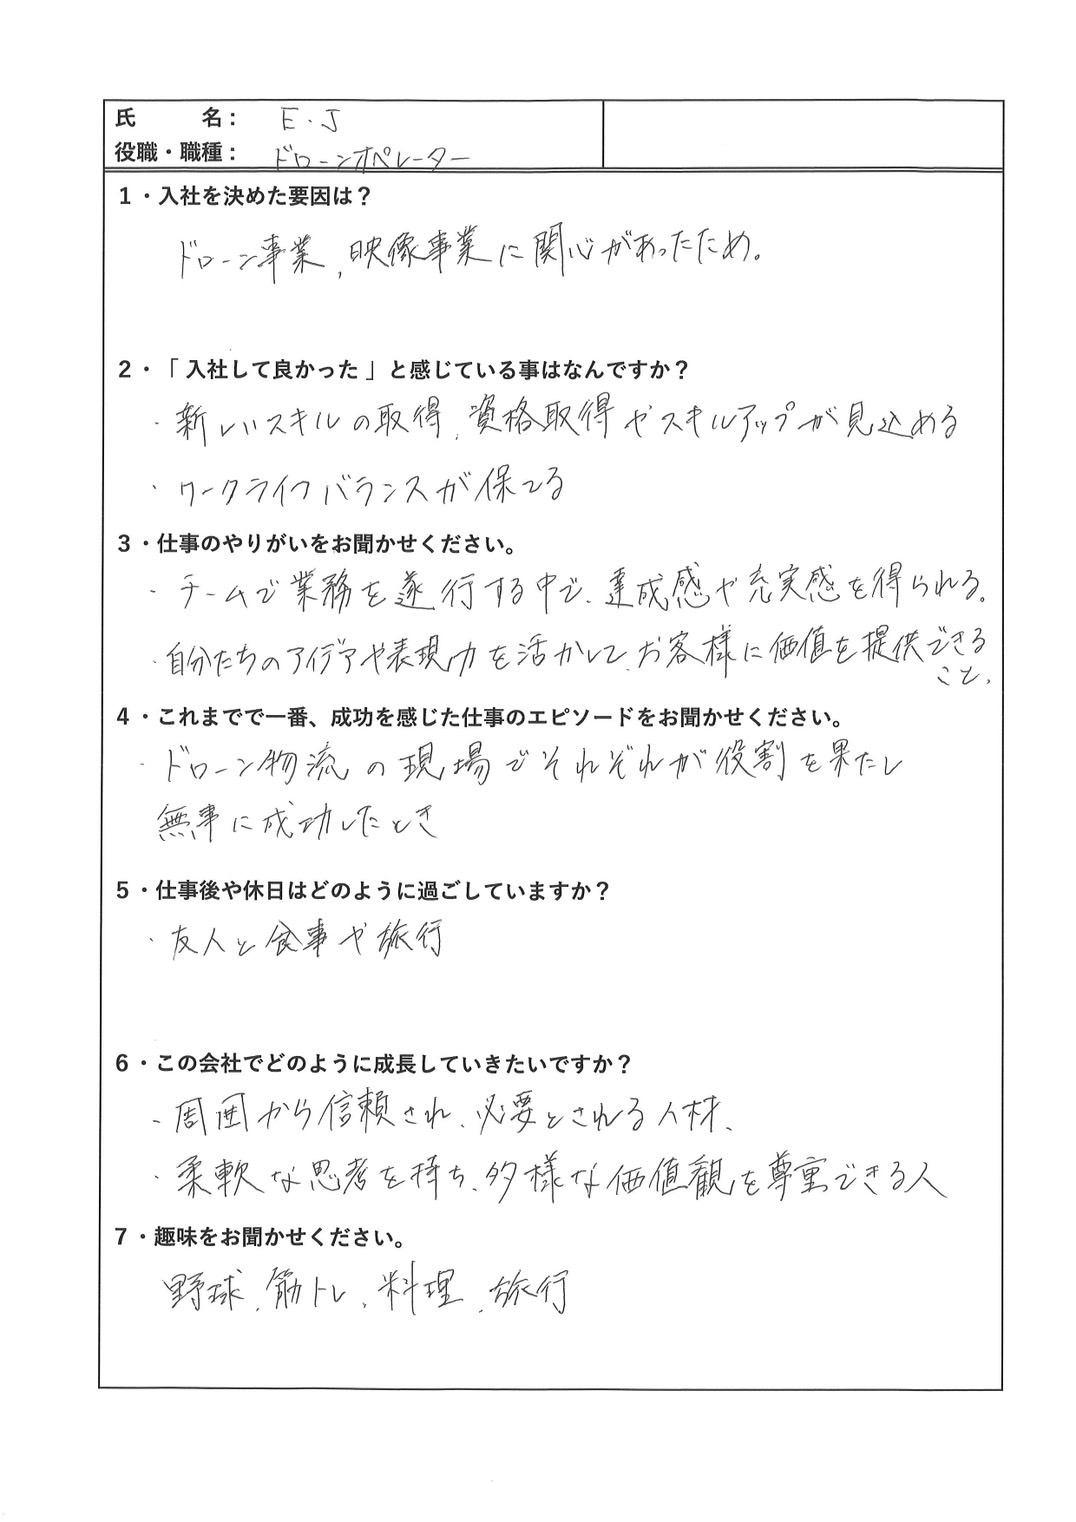 氏　　　名：　E・J
役職・職種：　ドローンオペレーター
1・入社を決めた要因は？
ドローン事業、映像事業に関心があったため。
2・「 入社して良かった 」と感じている事はなんですか？
・新しいスキルの取得、資格取得やスキルアップが見込める
・ワークライフバランスが保てる
3・仕事のやりがいをお聞かせください。
・チームで業務を遂行する中で、達成感や充実感を得られる。
・自分たちのアイデアや表現力を活かして、お客様に価値を提供できる
こと、
4・これまでで一番、成功を感じた仕事のエピソードをお聞かせください。
・ドローン物流の現場でそれぞれが役割を果たし
無事に成功したとき
5・仕事後や休日はどのように過ごしていますか？
・友人と食事や旅行
6・この会社でどのように成長していきたいですか？
・周囲から信頼され、必要とされる人材、
・柔軟な思考を持ち、多様な価値観を尊重できる人
7・趣味をお聞かせください。
野球、筋トレ、料理、旅行